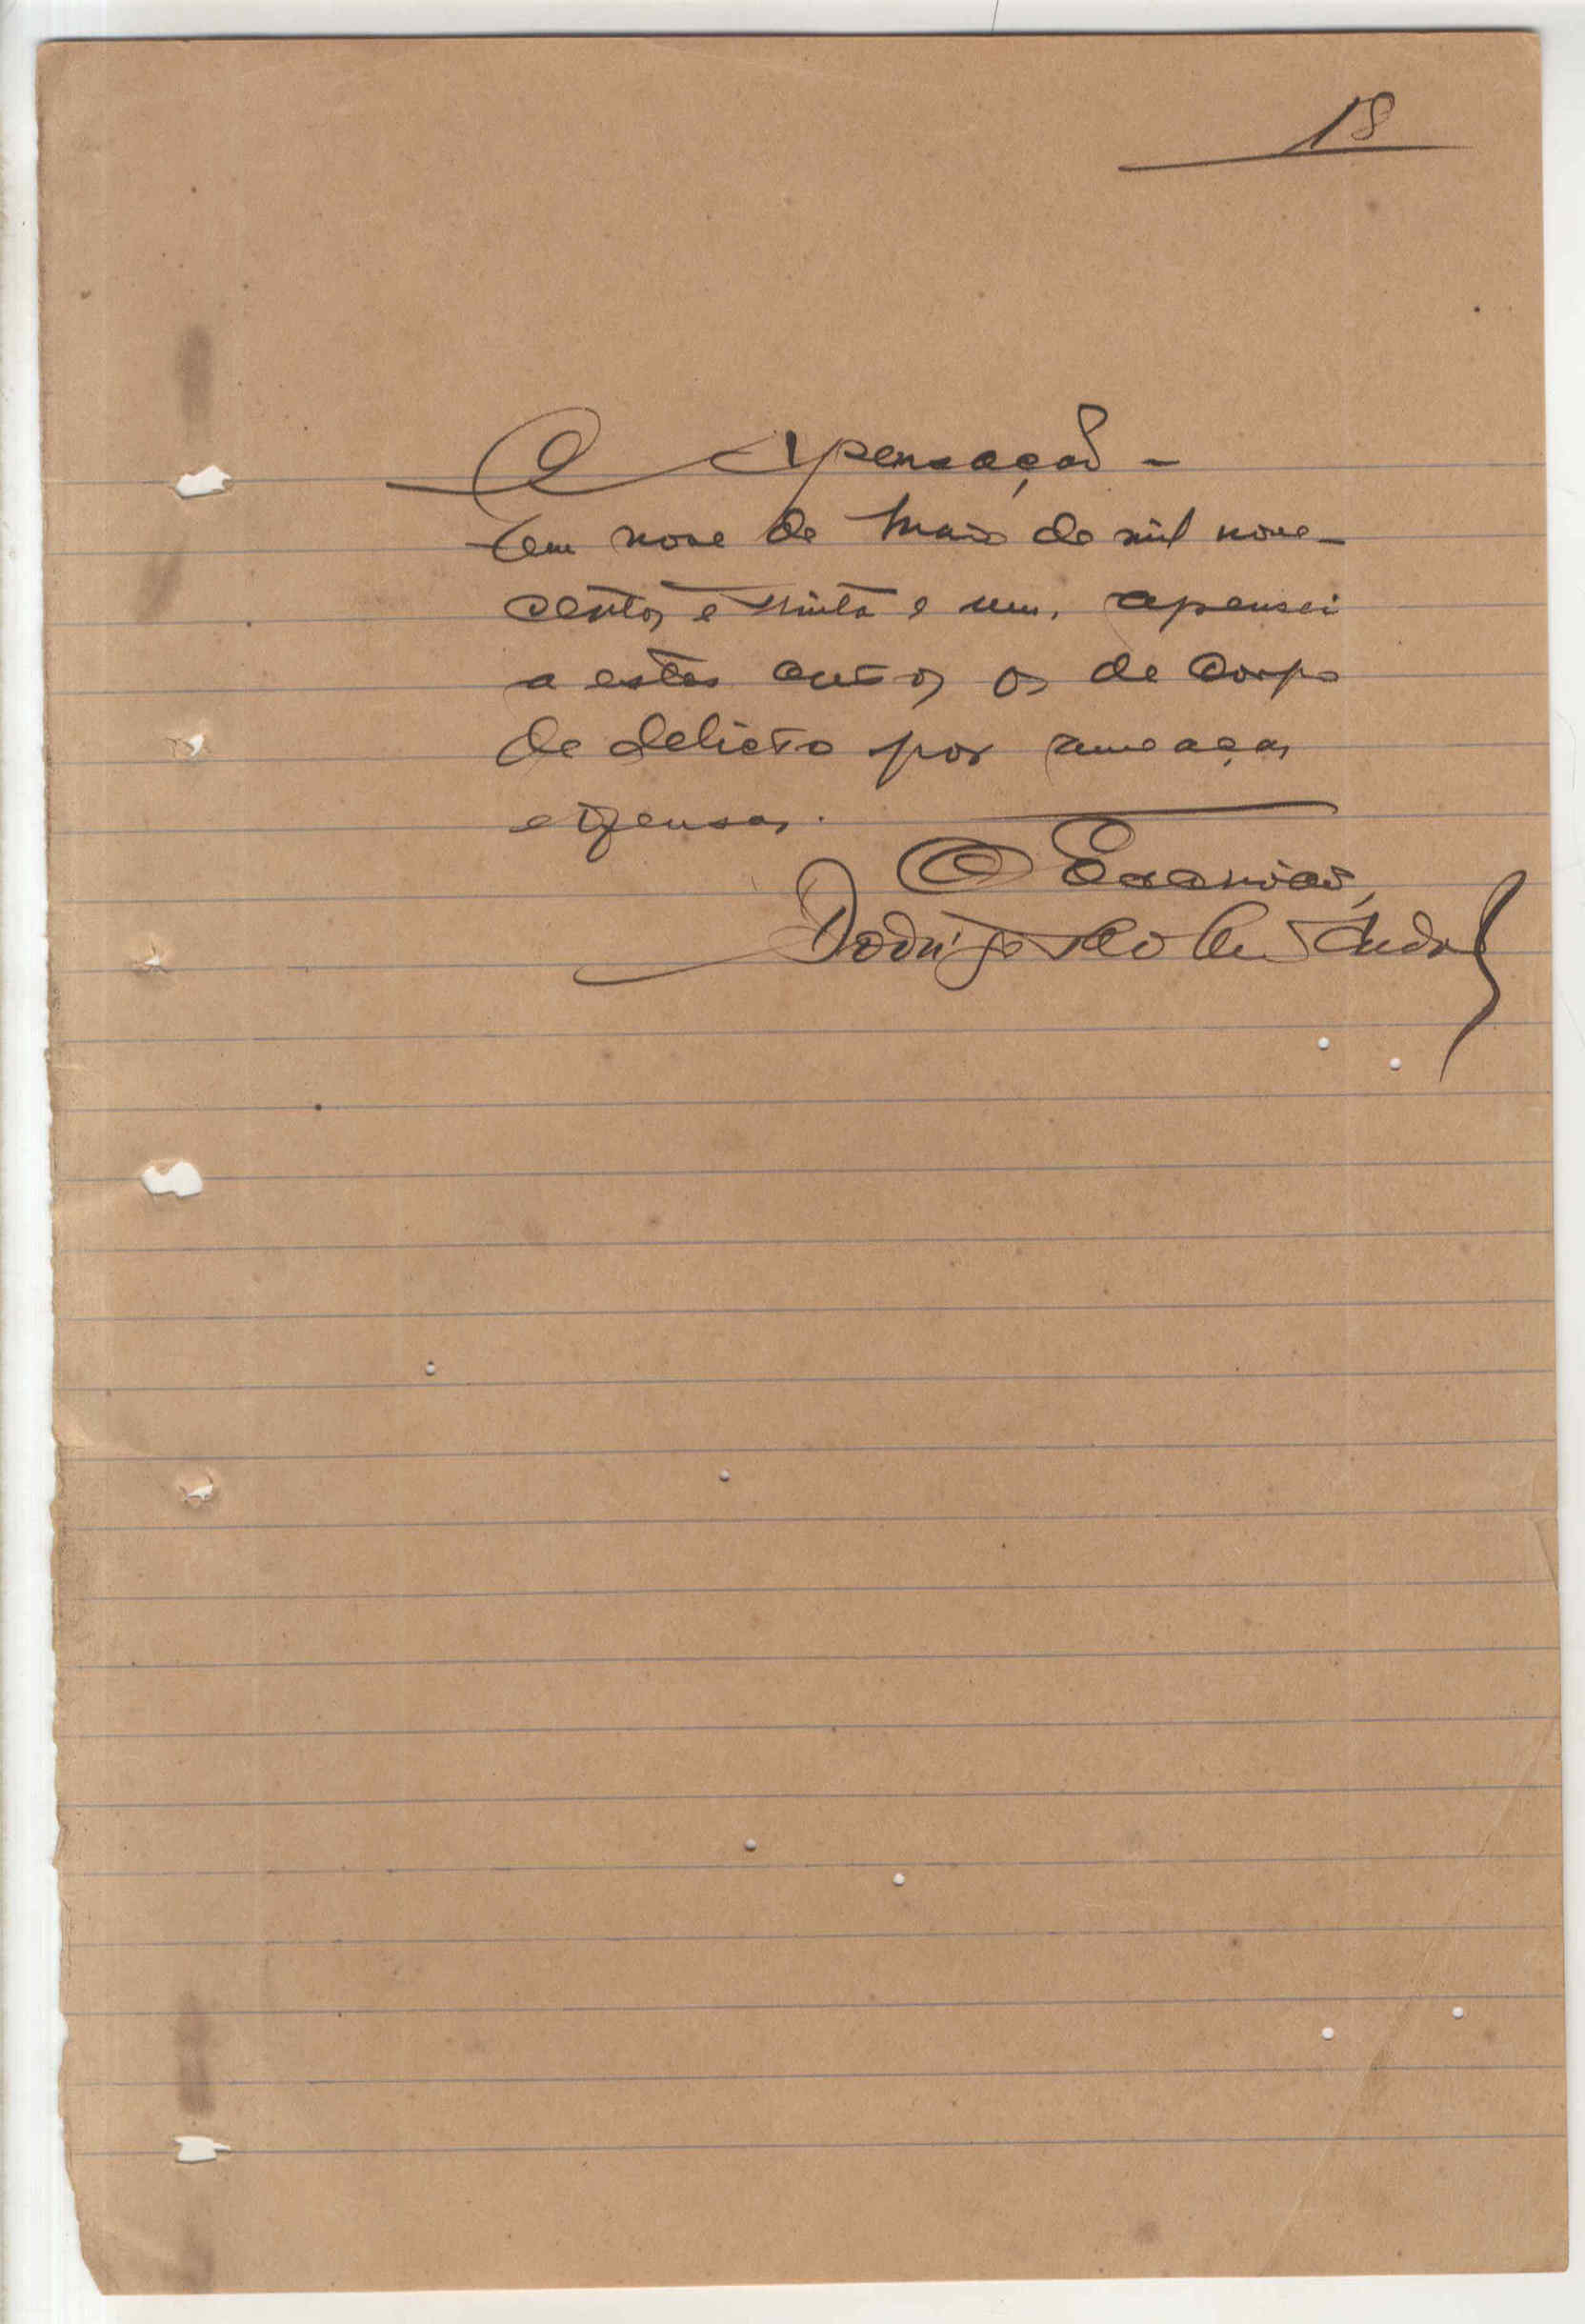 18
Apensação -
Em nove de Maio de mil nove-
centos e trinta e um, apensei
a estes autos os de corpo
de delicto por ameaças
e ofensas.
O Escrivão,
Rodrigo